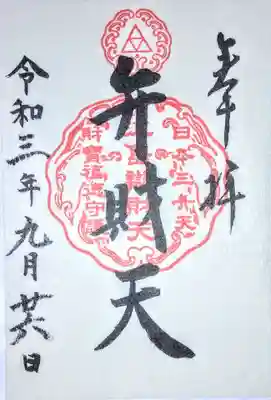 奉拝
弁財天
日本三弁天
財寶福徳守護
令和三年九月廿六日